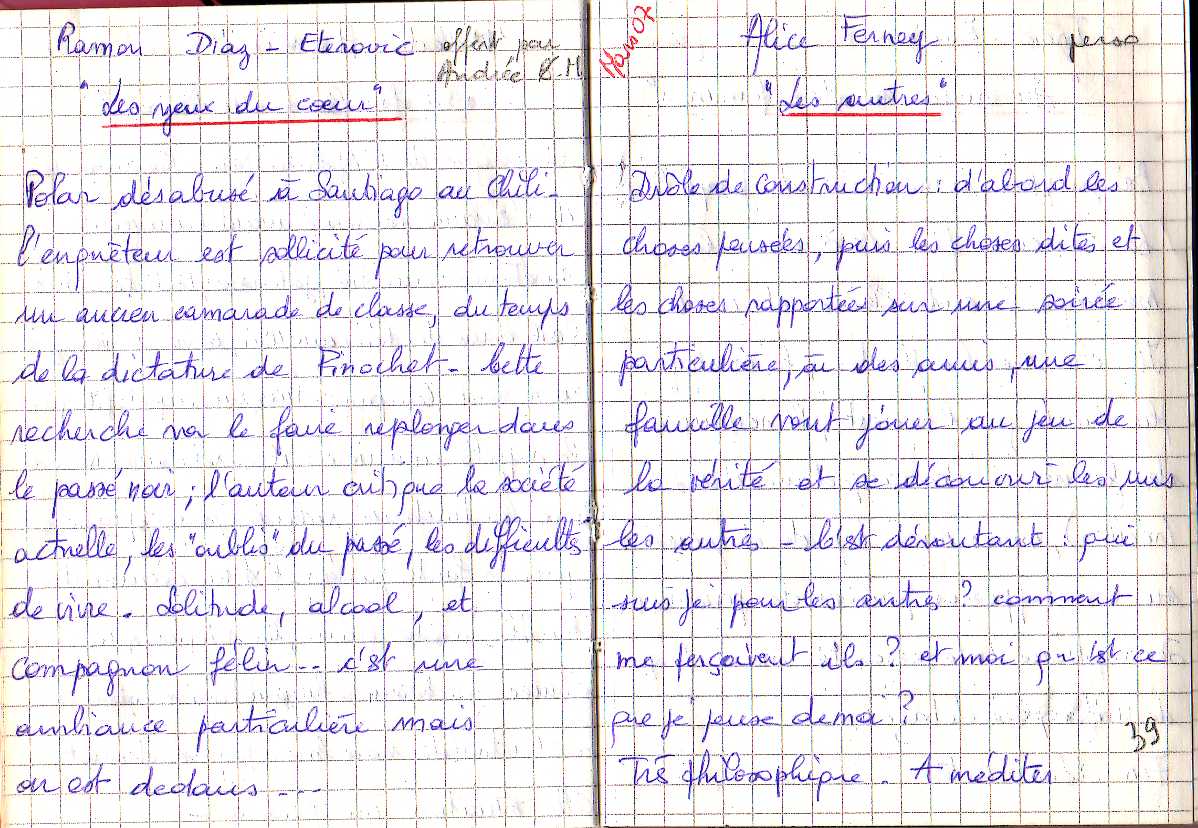 Ramon Diaz - Eterovic offert par
Andrée K.M
"Les yeux du coeur"
Polar désabusé à Santiago au Chili -
l'enquêteur est sollicité pour retrouver
un ancien camarade de classe, du temps
de la dictature de Pinochet - Cette
recherche va le faire replonger dans
le passé noir ; l'auteur critique la société
actuelle, les "oublis" du passé, les difficultés
de vivre - Solitude, alcool, et
compagnon félin -- c'est une
ambiance particulière mais
on est dedans ---
Mars 07
Alice Ferney perso
"Les autres"
"Drôle de construction : d'abord les
choses pensées, puis les choses dites et
les choses rapportées sur une soirée
particulière, où des amis, une
famille vont jouer au jeu de
la vérité et se découvrir les uns
les autres - C'est déroutant : qui
suis je pour les autres ? comment
me perçoivent ils ? et moi qu'est ce
que je pense de moi ?
39
Très philosophique - A méditer